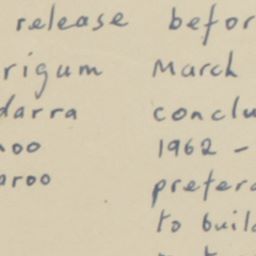 release befor
rigum March
darra conclu
oo 1962 -
aroo prefera
to build